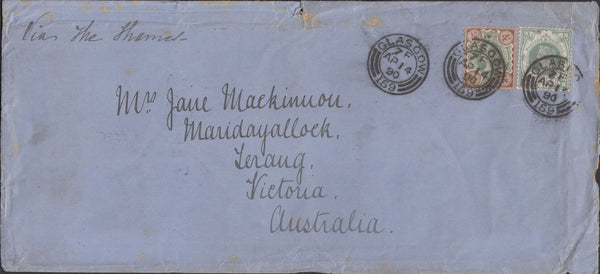 Via The Thames
GLASGOW
7 F
AP 14
90
159
GLASGOW
AP 14
90
159
GLASGOW
7 F
AP 14
90
159
Mrs Jane Mackinnon,
Maridayallock,
Terang,
Victoria,
Australia.